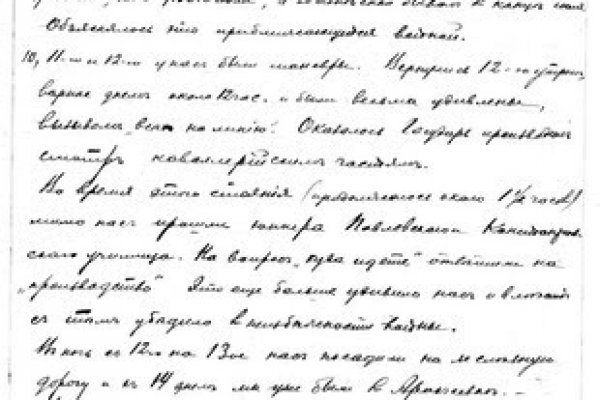 Объяснялось это приближающейся войной.
10, 11-го и 12-го у нас были маневры. Вернулись 12-го утром,
вернее днем около 12 час. и были весьма удивлены,
вызовом „всех на линию". Оказалось Государь производит
смотр кавалерийским частям.
Во время этого стояния (продолжалось около 1½ часов)
мимо нас прошли юнкера Павловского и Константиновского училища.
На вопрос „куда идете" ответили на
„производство" Это еще больше удивило нас и
с тем убедило в неизбежности войны.
В ночь с 12-го на 13-ое нас посадили на железную
дорогу и 14 днем мы уже были в